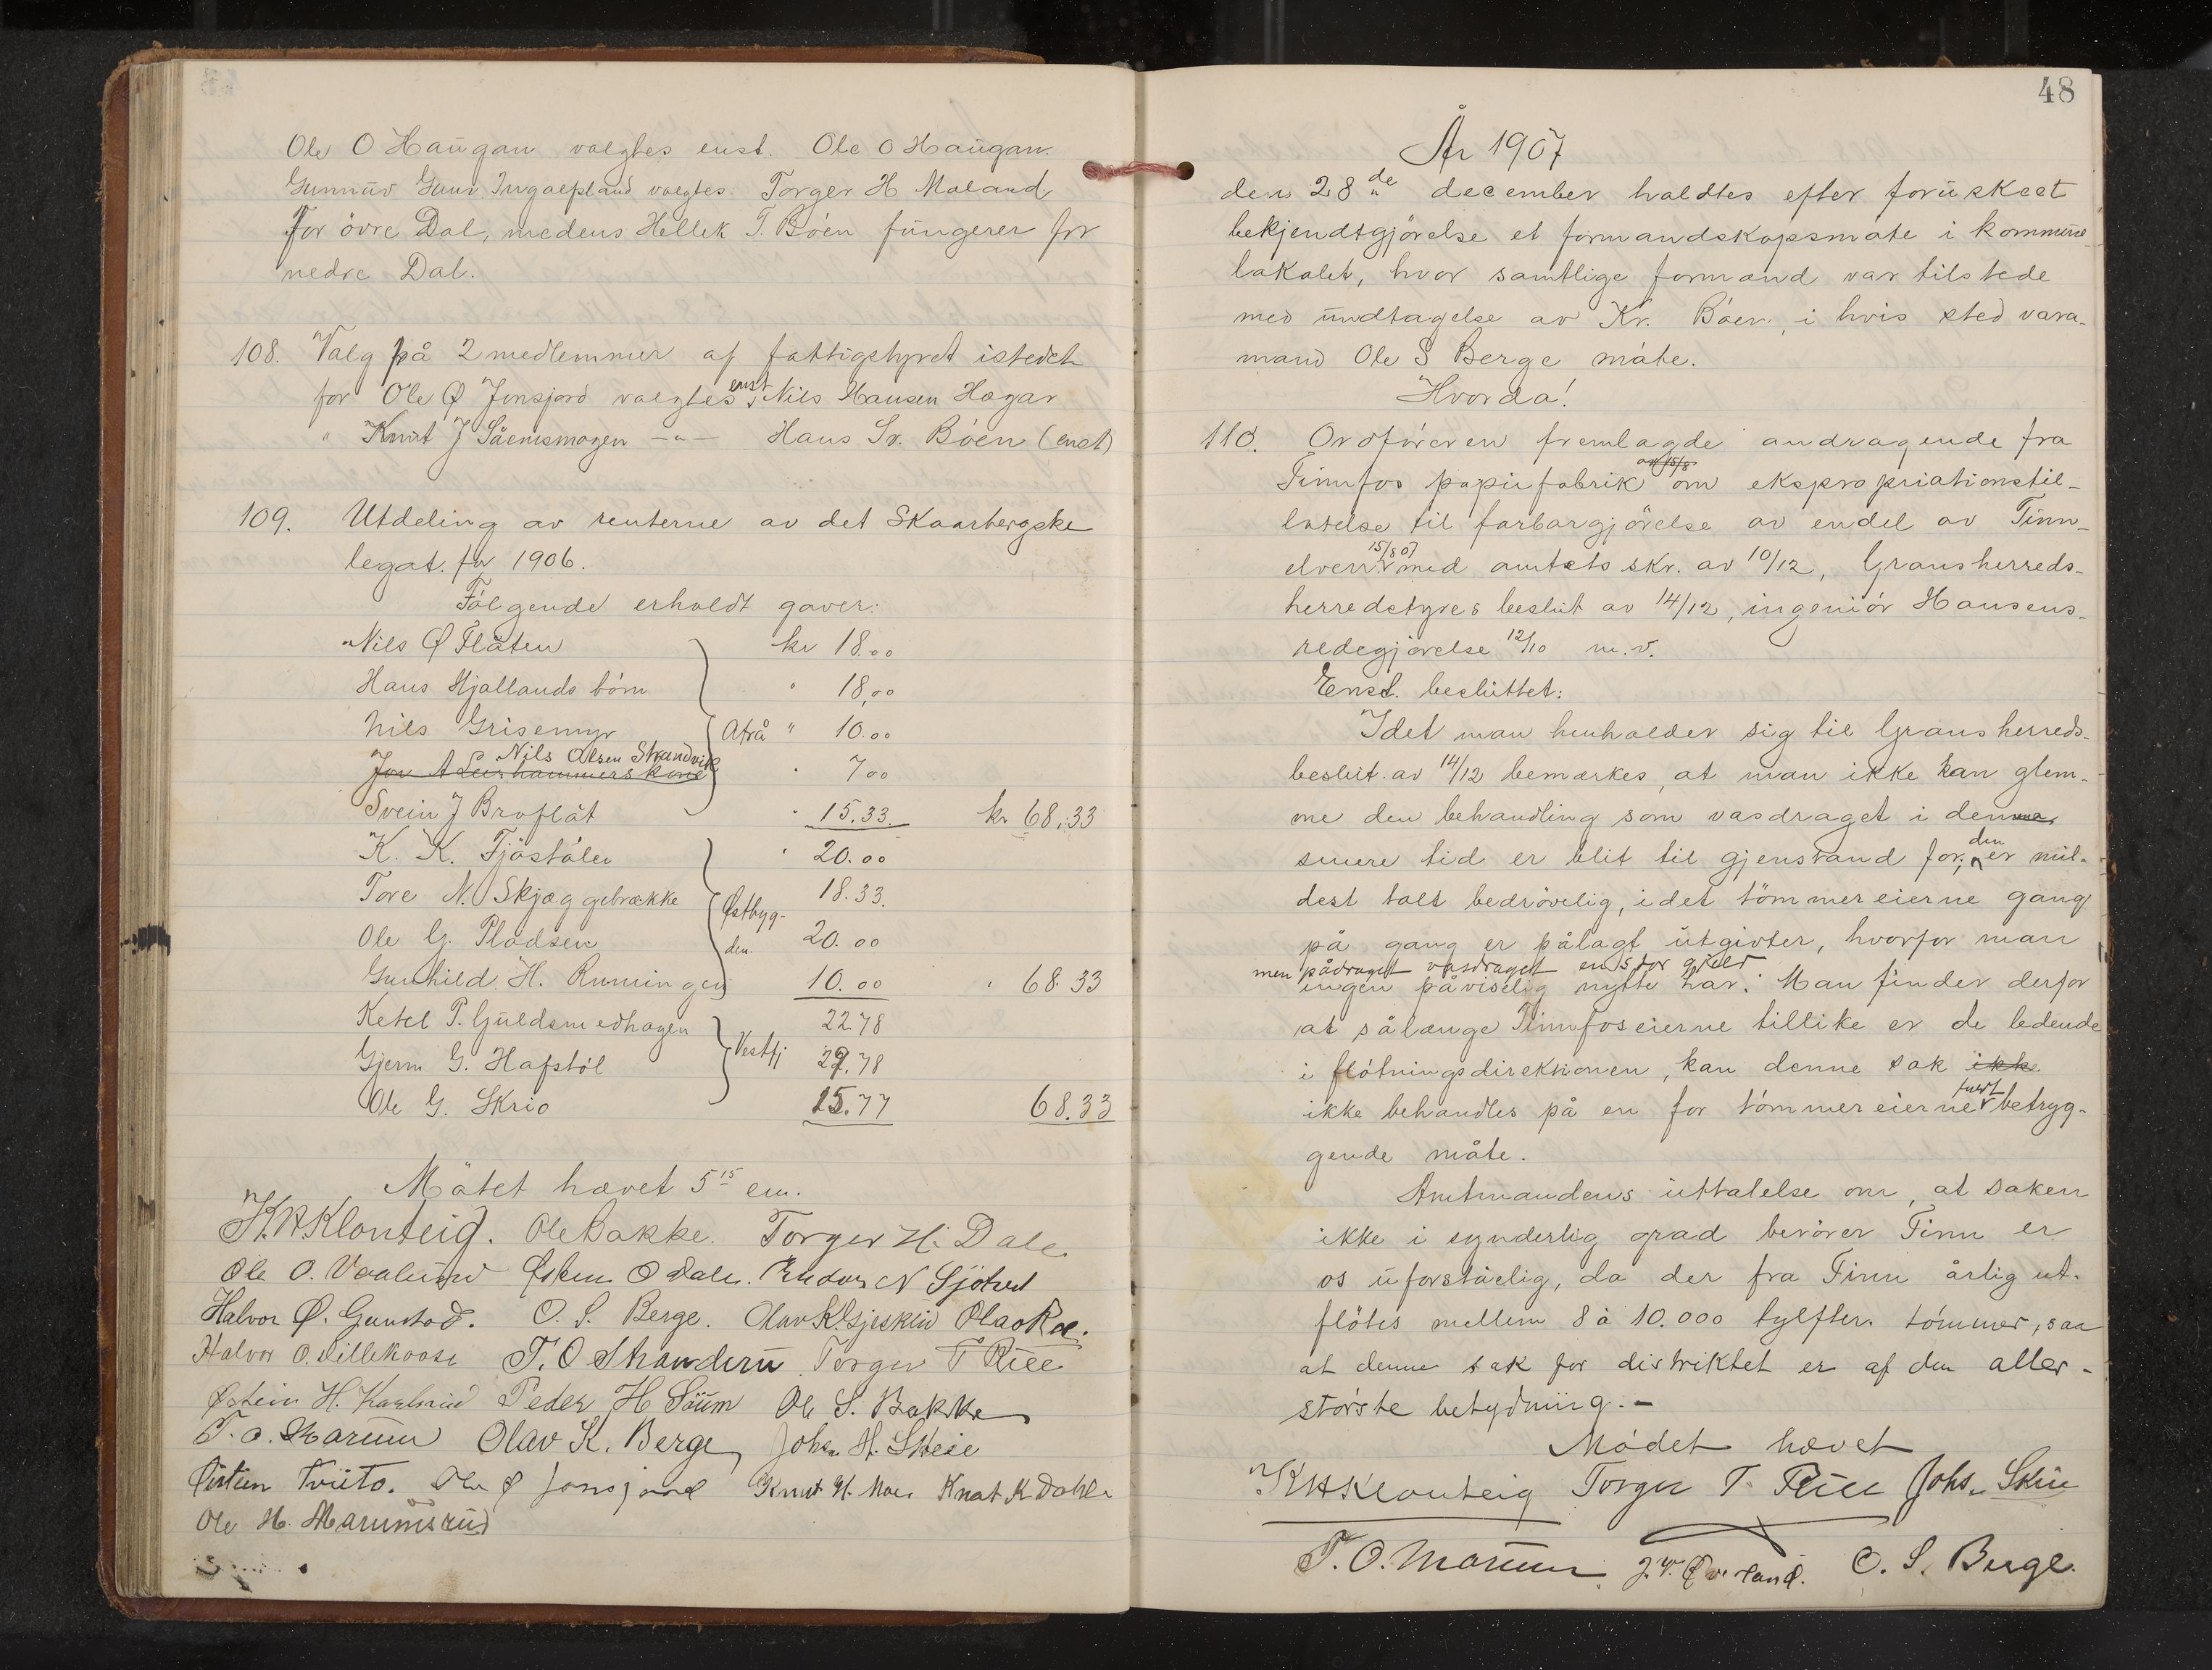 Ole O Haugan valgtes enst. Ole O Haugan.
Gunnuv Guns. Ingolfsland valgtes Torger H Maland
for övre Dal, medens Hellek T. Böen fungerer for
nedre Dal.
108. Valg på 2 medlemmer af fattigstyret istedet
for Ole Ø Jonsjord valgtes enst Nils Hansen Hagar
" Knut J Såemsmogen -"- Hans Sv. Böen (enst)
109. Utdeling av renterne av det Skaarbergske
legat. for 1906.
Følgende erholdt gaver:
Nils Ø Flåten kr 18.00
Hans Hjallands börn " 18,00
Nils Grisemyr Atrå " 10.00
Nils Olsen Strandvik
Jon A Leirhammers kone " 700
Svein J Broflåt " 15.33 kr 68.33
K. K. Fjöstölen " 20.00
Tore N. Skjæggebrække 18.33.
Ole G. Pladsen Østbyg-den. 20.00
Gunhild H. Runningen 10.00 " 68.33
Ketel P. Guldsmedhagen 22.78
Gjerm G. Hafstöl Vestfj 29.78
Ole G. Skrio 15.77 68.33
Mötet hævet 5 15 em.
K.H.Klonteig. Ole Bakke. Torger H. Dale
Ole O. Vaalund Östen O Dale. Endor N Sjötveit
Halvor Ø. Gunstad. O. S. Berge. Olav K. Gjeskin Olav Roe.
Halvor O. Lillekaasa T. O Stranderu Torger T Rue
Østein H. Kaslrud Peder H Söum Ole S. Bakka
T. O. Marum Olav K. Berge Johs. H. Skeie
Östen Tveito. Ole Ø Jonsjord Knut H. Moe Knut K Dahle
Ole H. Marumsrud
48
År 1907
den 28de december holdtes efter foruskeet
bekjendtgjörelse et formandskapsmöte i kommune
lokalet, hvor samtlige formænd var tilstede
med undtagelse av Kr. Böen, i hvis sted vara-
mand Ole S Berge mötte.
Hvorda!
110. Ordföreren fremlagde andragende fra
Tinnfos papirfabrik av 15/8 om ekspropriationstil-
latelse til farbargjörelse av endel av Tinn-
elven 15/8 07 med amtets skr. av 10/12, Gransherreds-
herredstyres beslut av 14/12, ingeniör Hansens
redegjörelse 12/10 m.v.
Enst. besluttet:
Idet man henholder sig til Gransherreds-
beslut av 14/12 bemærkes, at man ikke kan glem-
me den behandling som vasdraget i denne
senere tid er blit til gjenstand for; den er mil-
dest talt bedrövelig, idet tömmereierne gang
på gang er pålagt utgivter, hvorfor man
men pådraget vasdraget en stor gjeld
ingen påviselig nytte har. Man finder derfor
at sålænge Tinnfoseierne tillike er de ledende
i flötningsdirektionen, kan denne sak ikk
ikke behandles på en for tömmereierne fuldt betryg-
gende måte.
Amtmandens uttalelse om, at saken
ikke i synderlig grad berörer Tinn er
os uforståelig, da der fra Tinn årlig ut-
flötes mellem 8 à 10.000 tylfter tömmer, saa
at denne sak for distriktet er af den aller-
störste betydning. -
Mödet hævet
K H Klonteig Torger T. Rue Johs. Skeie
T. O. Marum J. T. Øverland. O. S. Berge.